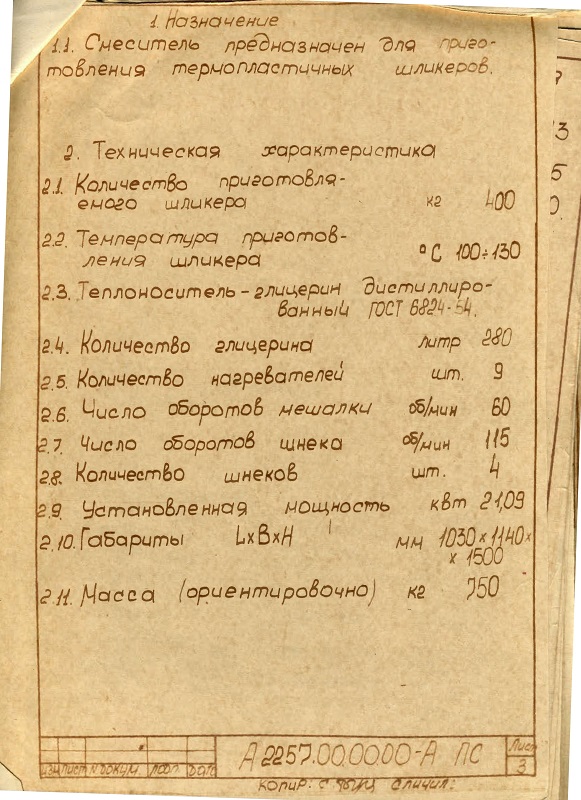 1. Назначение
1.1. Смеситель предназначен для приго-
товления термопластичных шликеров.
2. Техническая характеристика
2.1. Количество приготовля-
емого шликера кг 400
2.2. Температура приготов-
ления шликера °С 100÷130
2.3. Теплоноситель - глицерин дистиллиро-
ванный ГОСТ 6824-54.
2.4. Количество глицерина литр 280
2.5. Количество нагревателей шт. 9
2.6. Число оборотов мешалки об/мин 60
2.7. Число оборотов шнека об/мин 115
2.8. Количество шнеков шт. 4
2.9. Установленная мощность квт 21,09
2.10. Габариты L×B×H мм 1030×1140×
×1500
2.11. Масса (ориентировочно) кг 750
А2257.00.00.00-А ПС
Лист
3
Изм Лист N докум. Подп. Дата
Копир: Сличил: